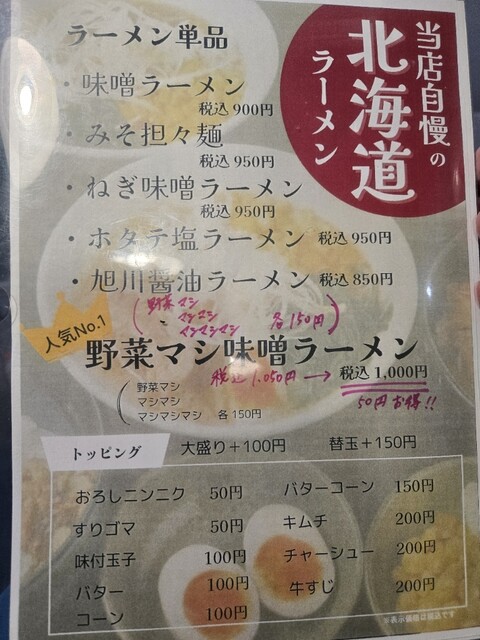 当店自慢の
北海道
ラーメン
ラーメン単品
・味噌ラーメン
税込 900円
・みそ担々麺
税込 950円
・ねぎ味噌ラーメン
税込 950円
・ホタテ塩ラーメン 税込 950円
・旭川醤油ラーメン 税込 850円
野菜マシ
マシマシ
マシマシマシ 各150円
人気No.1
野菜マシ味噌ラーメン
税込 1,050円 → 税込 1,000円
50円お得!!
野菜マシ
マシマシ
マシマシマシ 各150円
トッピング 大盛り+100円 替玉+150円
おろしニンニク 50円
すりゴマ 50円
味付玉子 100円
バター 100円
コーン 100円
バターコーン 150円
キムチ 200円
チャーシュー 200円
牛すじ 200円
※表示価格は税込です